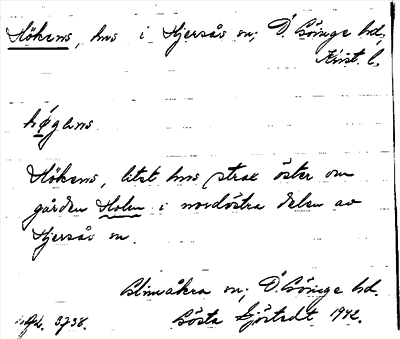 Hökens, hus i Hjersås sn; Ö. Göinge hd;
Krist. l.
høgans
Hökens, litet hus strax öster om
gården Holm i nordöstra delen av
Hjersås sn.
Glimåkra sn; Ö. Göinge hd.
3738. Gösta Sjöstedt 1942.